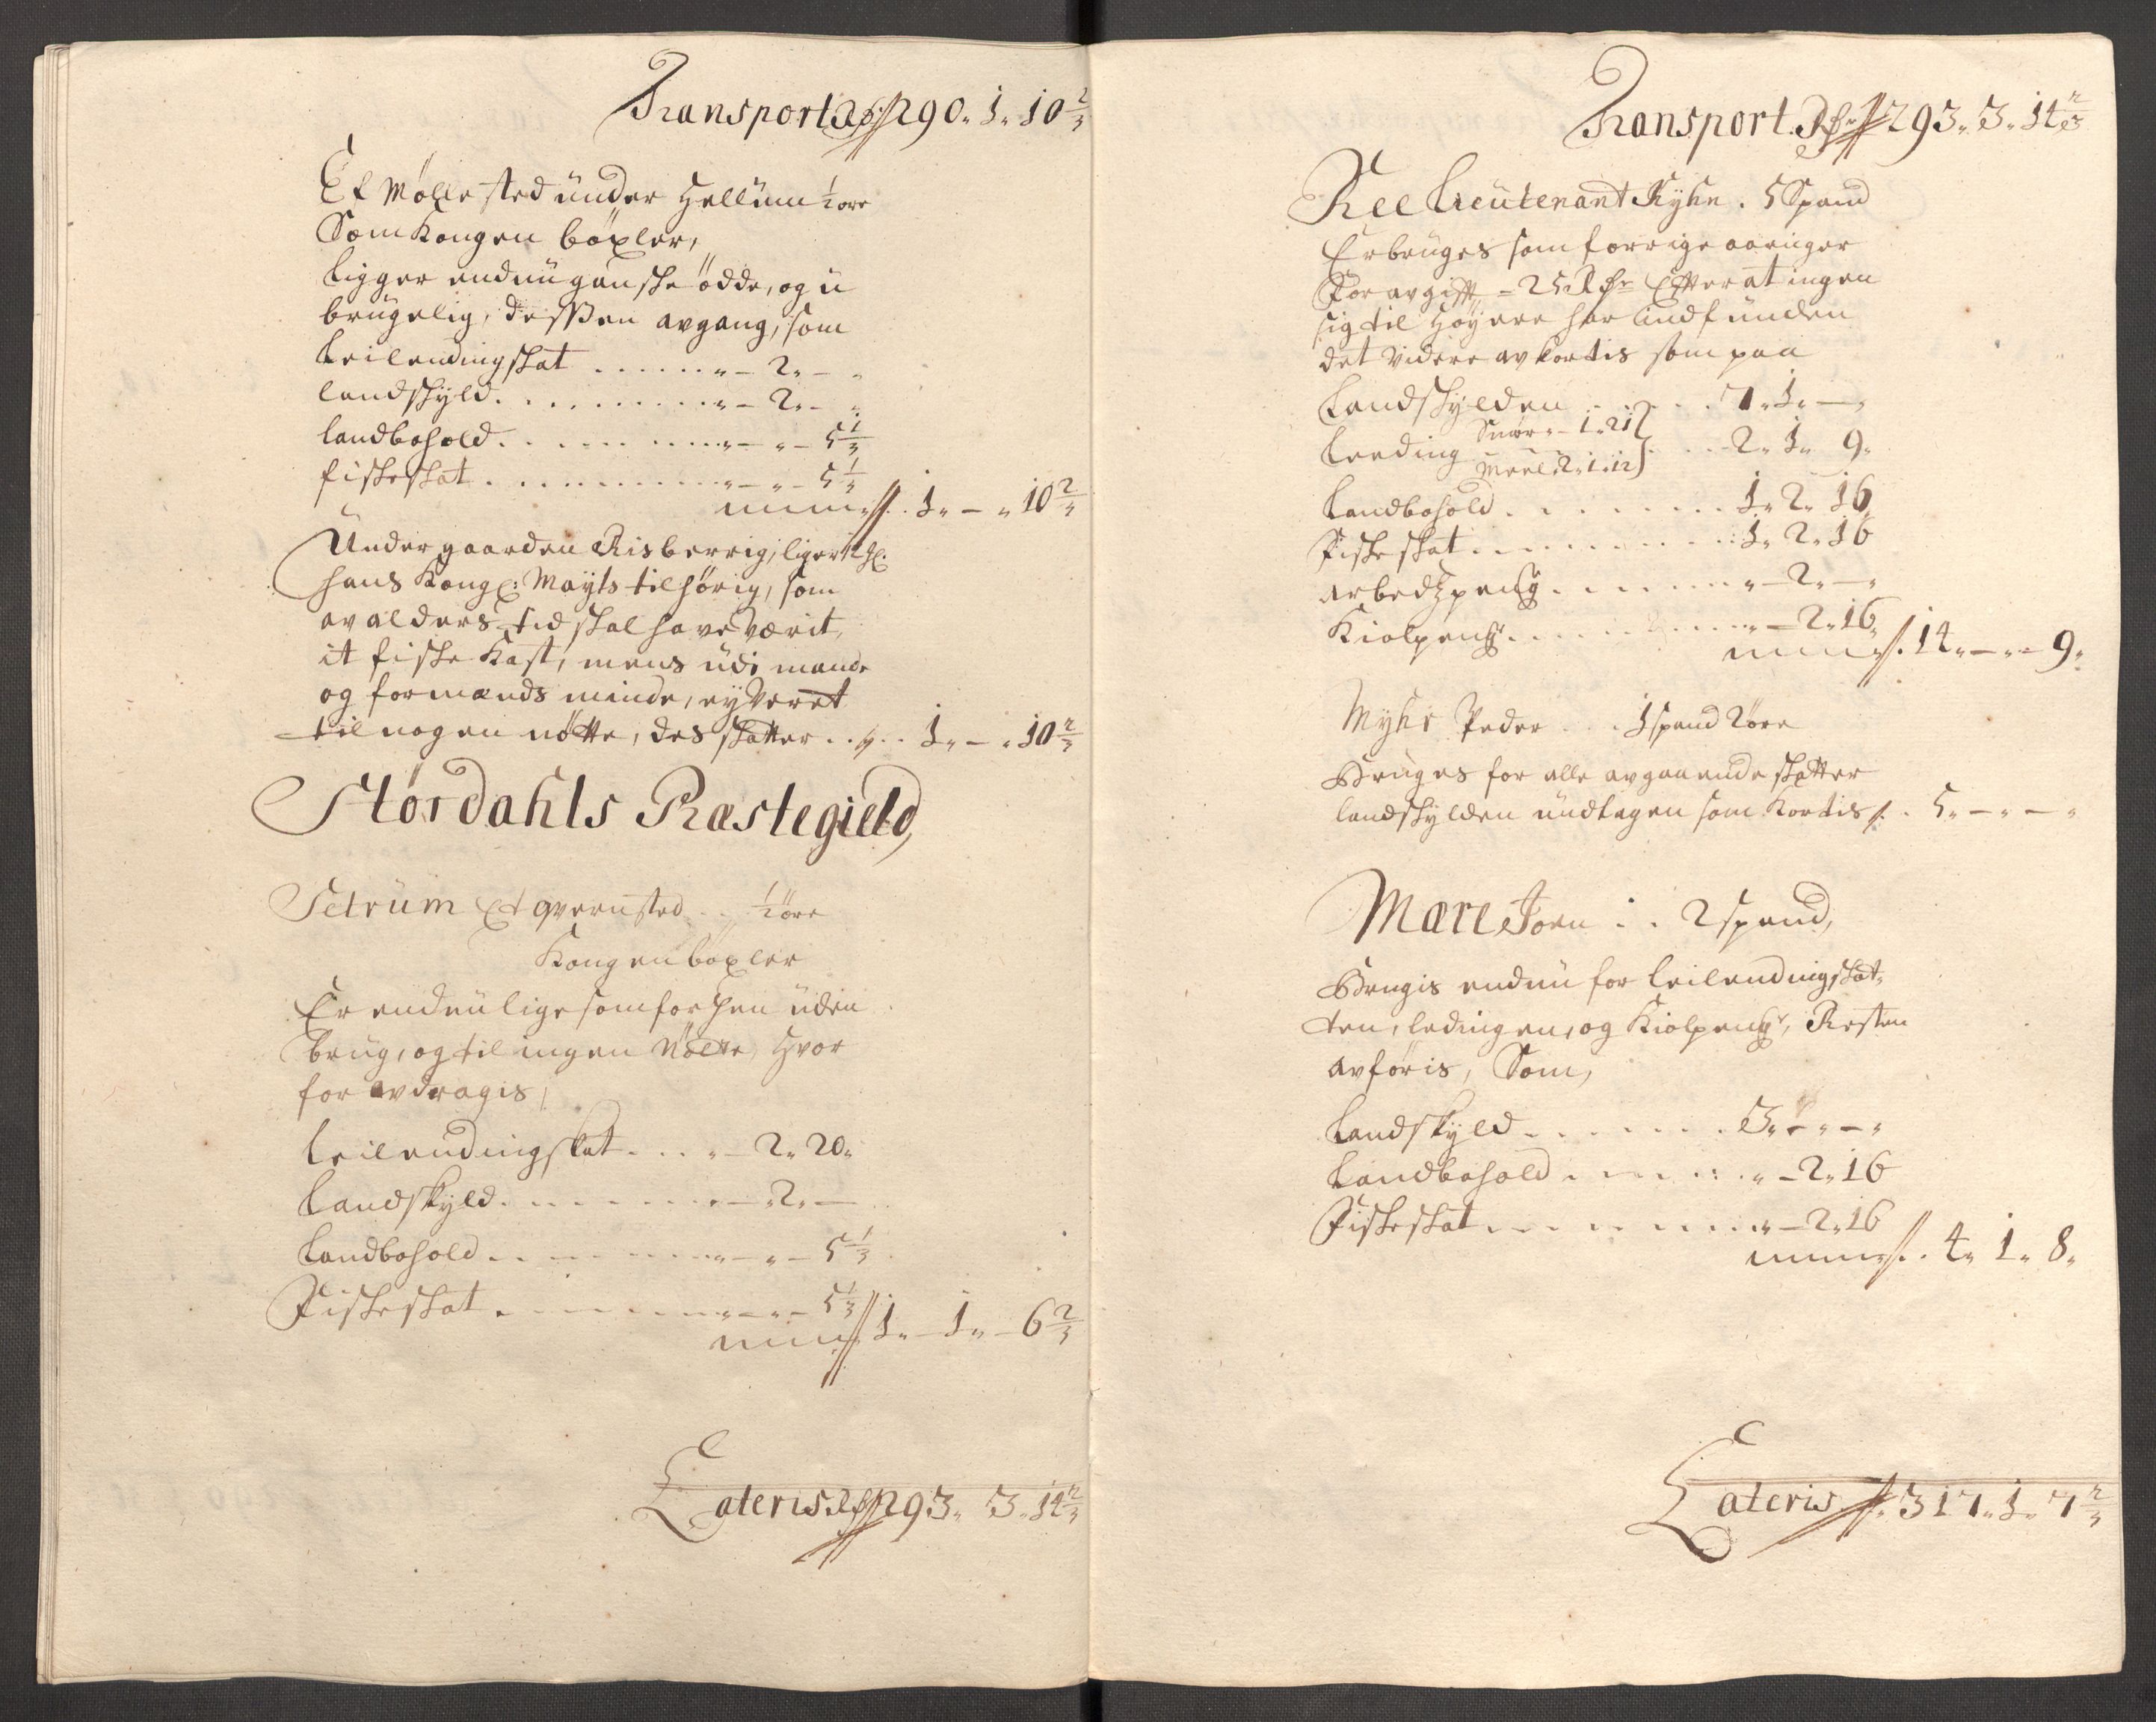 Transport Rdr 290. 1. 10 2/3
Et Mølle sted ünder Hellüm 1/2 øre
Som Kongen böxler,
ligger endnü ganske ödde, og ü
brügelig, dessen avgang, som
Leilendingskat . . . . . . „ - 2. - „
landskyld. . . . . . . . . „ - 2. - „
landbohold. . . . . . . . „ - „ - 5 1/3
fiskeskat . . . . . . . . „ - „ - 5 1/3
1. - „ 10 2/3
Under gaarden Risberrig, liger
hans Kongl: Maÿts tilhörig, som
av alders tid skal have værit,
it fiske Kast, mens üdi mands
og formænds minde, eÿ veret
til nogen nötte, des skatter . . 1. - „ 10 2/3
Størdahls Præstegield,
Setrüm Et qvernsted . . 1/2 öre
Kongen böxler
Er endnü lige som forhen üden
brüg, og til ingen Nötte, Hvor
for avdragis,
Leilendingskat. . . . „ - 2. 20.
Landskyld. . . . . . . „ - 2. -
Landbohold . . . . . . „ - „ - 5 1/3
Fiskeskat . . . . . . . „ - „ - 5 1/3
1. - 1. - 6 2/3
Lateris Rdr 293. 3. 14 2/3
Transport. Rdr 293. 3. 14 2/3
Ree Lieutenant Kyhn . 5 Spand
Erbruges som forrige aaringer
For avgifft - 25 Rdr Efter at ingen
sig til Höÿere har indfünden
det videre avkortis som paa
Landskÿlden . . . . . 7. 1. -
Smør - 1. 21
Leeding . . . 2. 1. 9.
Meel. 2. 1. 12
Landbohold . . . . . . . 1. 2. 16
Fiskeskat . . . . . . . . 1. 2. 16
arbedzpeng . . . . . . „ - 2. - „
Kiolpeng . . . . . . . „ - 2. 16.
14. - „ - 9.
Myhr Peder . . . 1 spand 2 øre
Brüges for alle avgaaende skatter
landskylden undtagen som Kortis . 5. - „ - „
Mære Joen . . . 2 spand,
Brugis endnü for leilendingskat-
ten, ledingen, og Kiolpeng, Resten
avføris, Som,
Landskyld . . . . . . . 3. - „ - „
Landbohold . . . . . . „ - 2. 16
Fiskeskat . . . . . . . „ - 2. 16
4. 1. 8.
Lateris 317. 1. 7 2/3